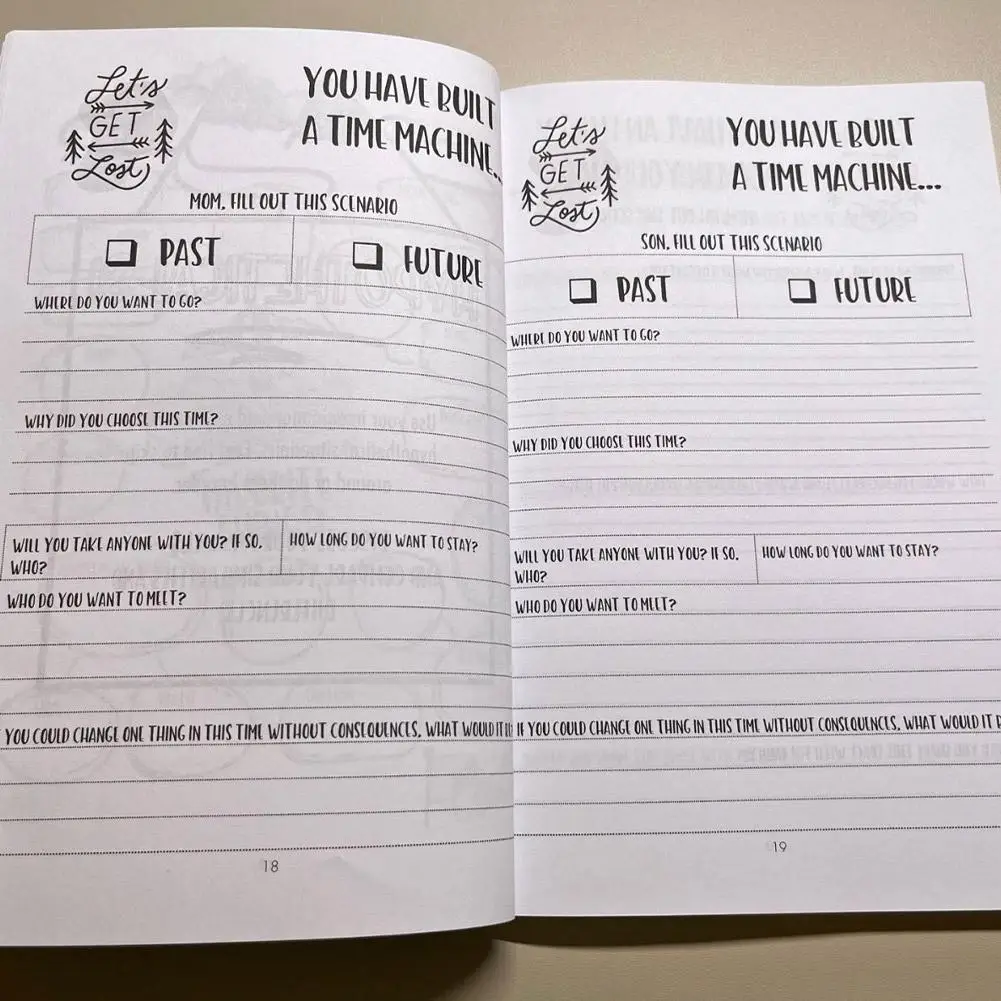 Let's
GET
Lost
YOU HAVE BUILT
A TIME MACHINE...
MOM, FILL OUT THIS SCENARIO
PAST
FUTURE
WHERE DO YOU WANT TO GO?
WHY DID YOU CHOOSE THIS TIME?
WILL YOU TAKE ANYONE WITH YOU? IF SO,
WHO?
HOW LONG DO YOU WANT TO STAY?
WHO DO YOU WANT TO MEET?
YOU COULD CHANGE ONE THING IN THIS TIME WITHOUT CONSEQUENCES, WHAT WOULD IT
18
Let's
GET
Lost
YOU HAVE BUILT
A TIME MACHINE...
SON, FILL OUT THIS SCENARIO
PAST
FUTURE
WHERE DO YOU WANT TO GO?
WHY DID YOU CHOOSE THIS TIME?
WILL YOU TAKE ANYONE WITH YOU? IF SO,
WHO?
HOW LONG DO YOU WANT TO STAY?
WHO DO YOU WANT TO MEET?
IF YOU COULD CHANGE ONE THING IN THIS TIME WITHOUT CONSEQUENCES, WHAT WOULD IT
19